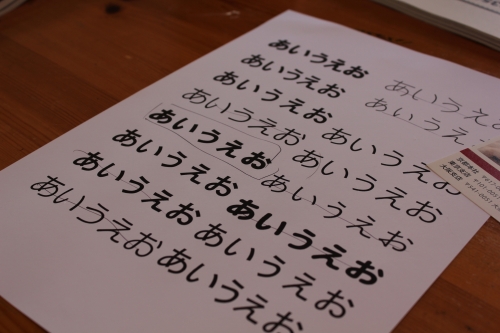 あいうえお
あいうえお
あいうえお
あいうえお
あいうえお
あいうえお
あいうえお
あいうえお
あいうえ
あいうえ
あいうえお
あいうえお
あいうえお
あいうえお
あいうえお
あいうえお
京都本社
東京支店
大阪支店